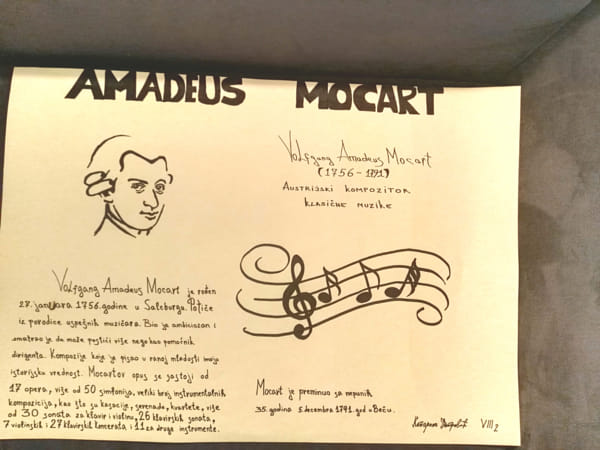 AMADEUS MOCART
Volfgang Amadeus Mocart
(1756-1791)
AUSTRIJSKI KOMPOZITOR
KLASIČNE MUZIKE
Volfgang Amadeus Mocart je rođen
27. januara 1756. godine u Salcburgu. Potiče
iz porodice uspešnih muzičara. Bio je ambiciozan i
smatrao je da može postići više nego kao pomoćnik
dirigenta. Kompozije koje je pisao u ranoj mladosti imaju
istorijsku vrednost. Mocartov opus se sastoji od
17 opera, više od 50 simfonija, veliki broj instrumentalnih
kompozicija, kao što su kasacije, serenade, kvartete, više
od 30 sonata za klavir i violinu, 26 klavirskih sonata,
7 violinskih i 27 klavirskih koncerata i 11 za druge instrumente.
Mocart je preminuo sa nepunih
35. godina 5. decembra 1791. god u Beču.
VIII2